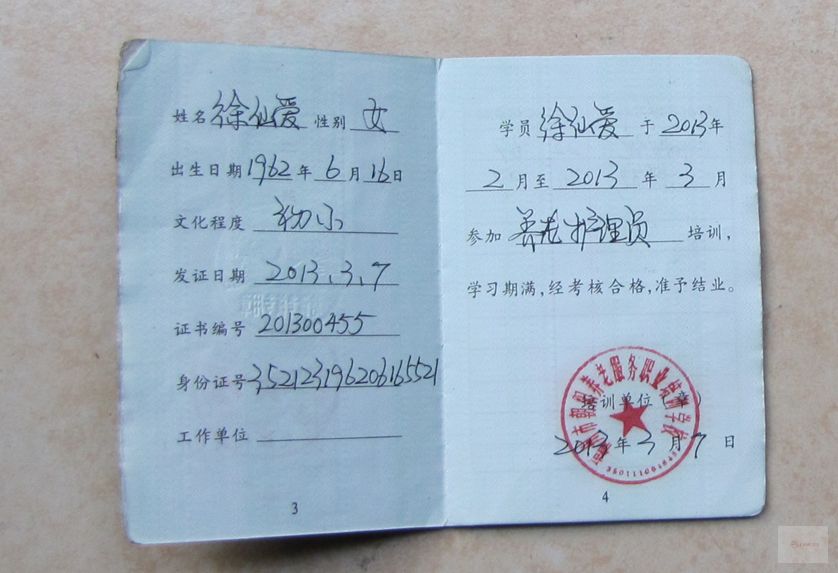 姓名 徐仙爱 性别 女
出生日期 1962 年 6 月 16 日
文化程度 初小
发证日期 2013、3、7
证书编号 201300455
身份证号 352123196206165521
工作单位
3
学员 徐仙爱 于 2013 年
2 月至 2013 年 3 月
参加 养老护理员 培训，
学习期满，经考核合格，准予结业。
养老服务职业培训学校
培训单位（章）
2013 年 3 月 7 日
4